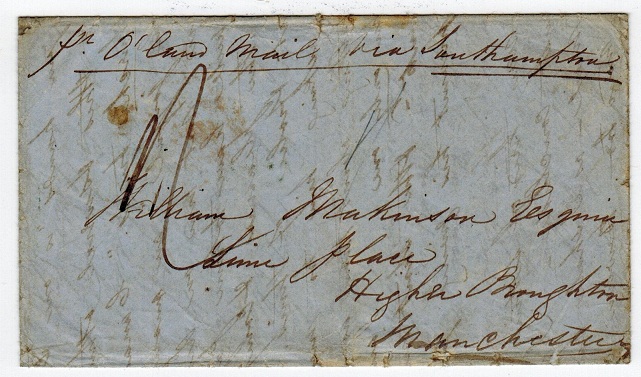 pr O'land Mail via Southampton.
William Makinson Esquire
Lime place
Higher Broughton
Manchester